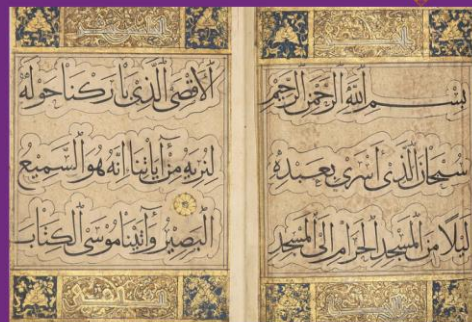 بِسْمِ اللَّهِ الرَّحْمَٰنِ الرَّحِيمِ
سُبْحَانَ الَّذِي أَسْرَى بِعَبْدِهِ
لَيْلًا مِنَ الْمَسْجِدِ الْحَرَامِ إِلَى الْمَسْجِدِ
الْأَقْصَى الَّذِي بَارَكْنَا حَوْلَهُ
لِنُرِيَهُ مِنْ آيَاتِنَا إِنَّهُ هُوَ السَّمِيعُ
الْبَصِيرُ وَآتَيْنَا مُوسَى الْكِتَابَ